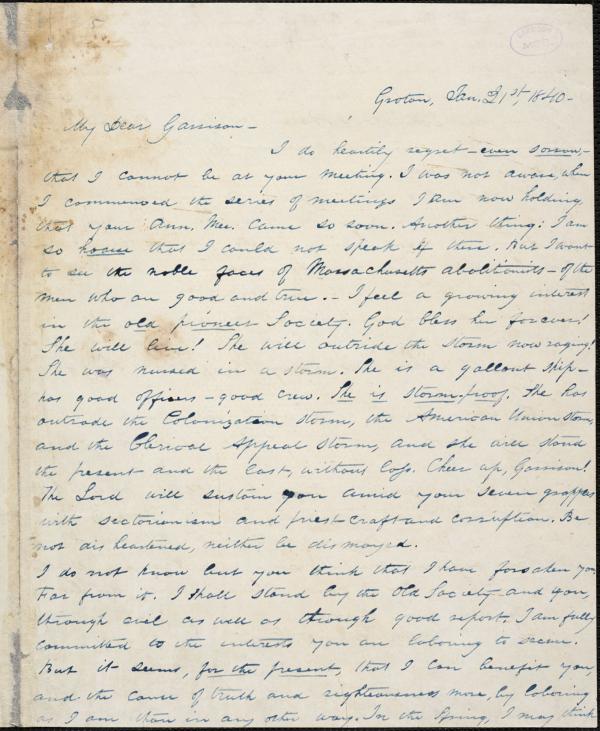 Groton, Jan. 21st, 1840-
My Dear Garrison-
I do heartily regret - even sorrow, -
that I cannot be at your meeting. I was not aware, when
I commenced the series of meetings I am now holding,
that your Ann. Mee. came so soon. Another thing: I am
so hoarse that I could not speak if there. But I want
to see the noble faces of Massachusetts abolitionists - of the
men who are good and true. - I feel a growing interest
in the old pioneer Society. God bless her forever!
She will live! She will outride the storm now raging!
She was nursed in a storm. She is a gallant ship -
has good officers - good crew. She is storm-proof. She has
outrode the Colonization storm, the American Union storm,
and the Clerical Appeal storm, and she will stand
the present and the last, without loss. Cheer up, Garrison!
The Lord will sustain you amid your seven grapples
with sectarianism and priest-craft and corruption. Be
not disheartened, neither be dismayed.
I do not know but you think that I have forsaken you.
Far from it. I shall stand by the Old Society and you,
through evil as well as through good report. I am fully
committed to the interests you are laboring to secure.
But it seems, for the present, that I can benefit you
and the cause of truth and righteousness more, by laboring
as I am than in any other way. In the Spring, I may think